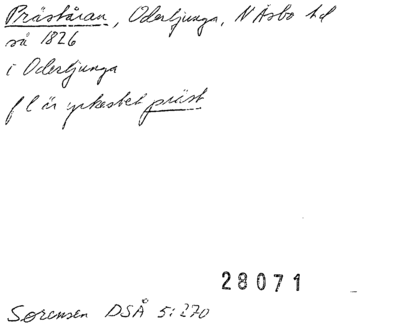 Präståran, Oderljunga, N Åsbo hd
så 1826
i Oderljunga
f l är yrkestet präst
28071
Sørensen DSÅ 5:270